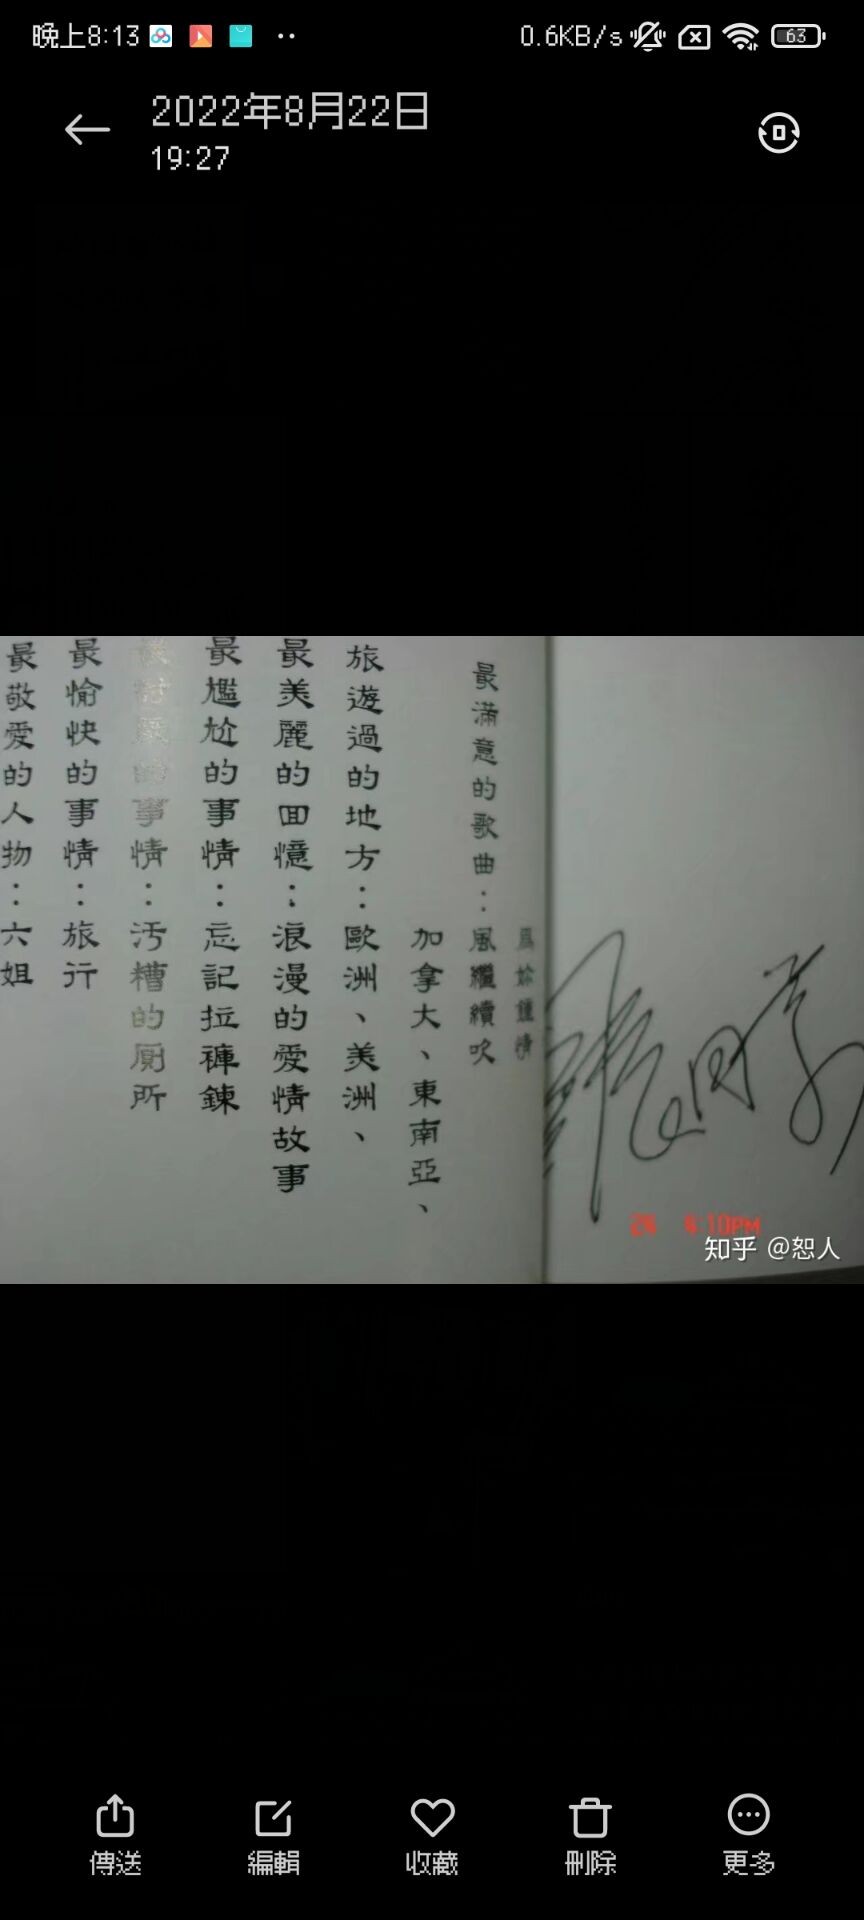 晚上8:13
0.6KB/s
63
2022年8月22日
19:27
為妳鍾情
最滿意的歌曲：風繼續吹
加拿大、東南亞、
旅遊過的地方：歐洲、美洲、
最美麗的回憶：浪漫的愛情故事
最尷尬的事情：忘記拉褲鍊
最討厭的事情：污糟的厠所
最愉快的事情：旅行
最敬愛的人物：六姐
4:10PM
知乎 @恕人
傳送
編輯
收藏
刪除
更多